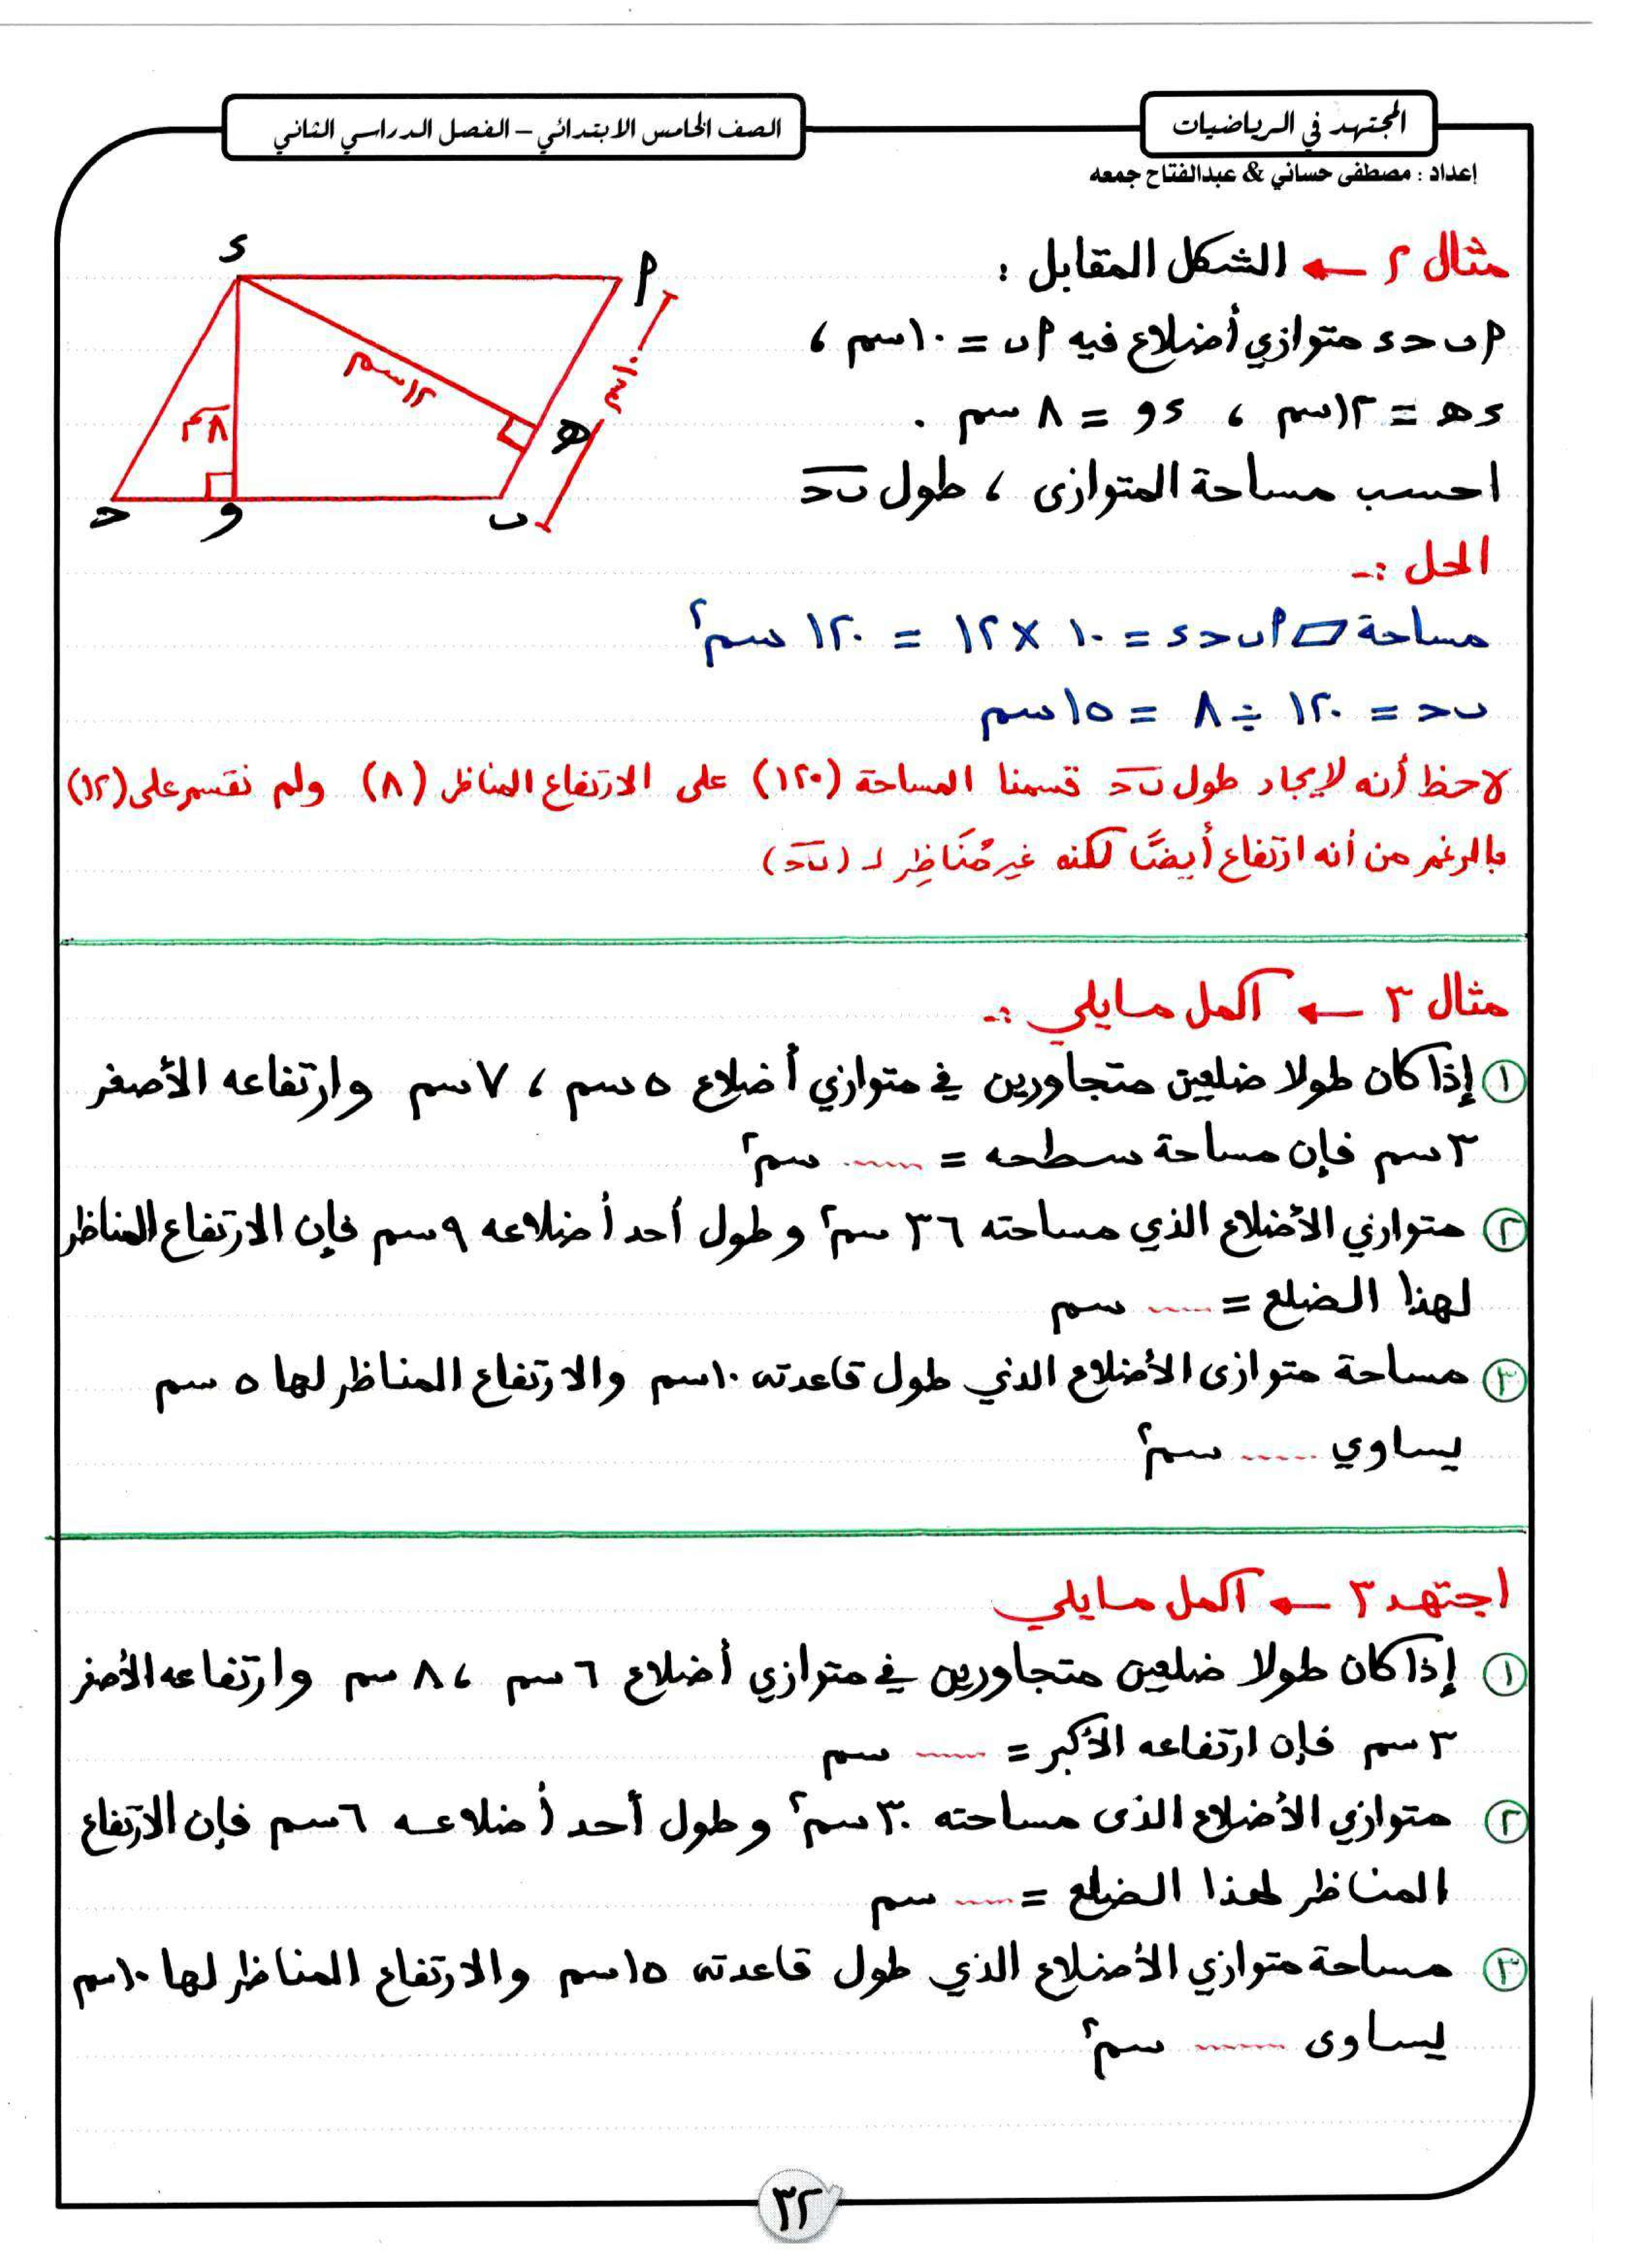 المجتهد في الرياضيات
الصف الخامس الابتدائي – الفصل الدراسي الثاني
إعداد : مصطفى حساني & عبدالفتاح جمعه
مثال ٢ ← الشكل المقابل :
أ ب ج د متوازي أضلاع فيه أ ب = ١٠ سم ،
د هـ = ١٢ سم ، د و = ٨ سم .
احسب مساحة المتوازى ، طول ب ج
د
أ
١٠ سم
١٢ سم
٨ سم
هـ
ج
و
ب
الحل :-
مساحة ▱ أ ب ج د = ١٠ × ١٢ = ١٢٠ سم٢
ب ج = ١٢٠ ÷ ٨ = ١٥ سم
لاحظ أنه لإيجاد طول ب ج قسمنا المساحة (١٢٠) على الارتفاع المناظر (٨) ولم نقسم على (١٢)
بالرغم من أنه ارتفاع أيضًا لكنه غير مُنَاظِر لـ (ب ج)
مثال ٣ ← أكمل مايلي :-
١ إذا كان طولا ضلعين متجاورين في متوازي أضلاع ٥ سم ، ٧ سم وارتفاعه الأصغر
٣ سم فإن مساحة سطحه = ...... سم٢
٢ متوازي الأضلاع الذي مساحته ٣٦ سم٢ وطول أحد أضلاعه ٩ سم فإن الارتفاع المناظر
لهذا الضلع = ...... سم
٣ مساحة متوازى الأضلاع الذي طول قاعدته ١٠ سم والارتفاع المناظر لها ٥ سم
يساوي ...... سم٢
اجتهد ٣ ← أكمل مايلي
١ إذا كان طولا ضلعين متجاورين في متوازي أضلاع ٦ سم ، ٨ سم وارتفاعه الأصغر
٣ سم فإن ارتفاعه الأكبر = ...... سم
٢ متوازي الأضلاع الذى مساحته ٣٠ سم٢ وطول أحد أضلاعه ٦ سم فإن الارتفاع
المناظر لهذا الضلع = ...... سم
٣ مساحة متوازي الأضلاع الذي طول قاعدته ١٥ سم والارتفاع المناظر لها ١٠ سم
يساوى ...... سم٢
٣٢